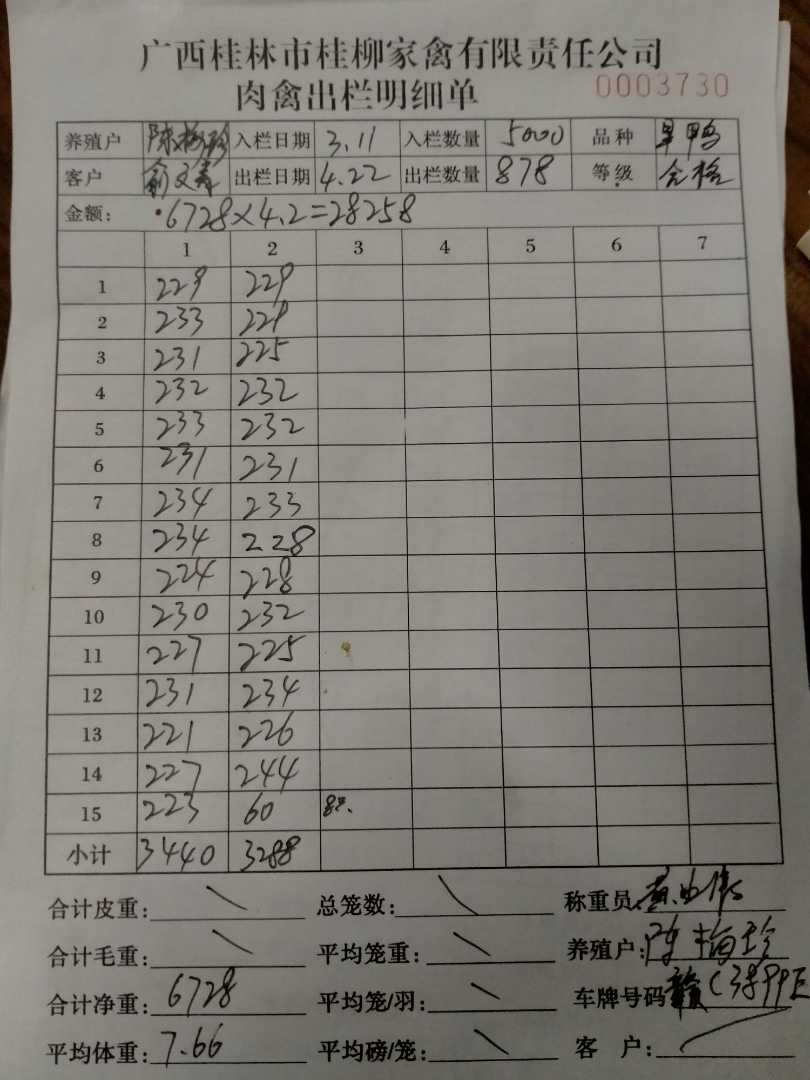 广西桂林市桂柳家禽有限责任公司
肉禽出栏明细单 0003730
养殖户 陈梅珍 入栏日期 3.11 入栏数量 5000 品种 旱鸭
客户 俞文 出栏日期 4.22 出栏数量 878 等级 合格
金额: 6728×4.2=28258
1 2 3 4 5 6 7
1 229 229
2 233 229
3 231 225
4 232 232
5 233 232
6 231 231
7 234 233
8 234 228
9 224 228
10 230 232
11 227 225
12 231 234
13 221 226
14 227 244
15 223 60 8只
小计 3440 3288
合计皮重: 总笼数: 称重员:
合计毛重: 平均笼重: 养殖户: 陈梅珍
合计净重: 6728 平均笼/羽: 车牌号码 赣C3899E
平均体重: 7.66 平均磅/笼: 客 户: